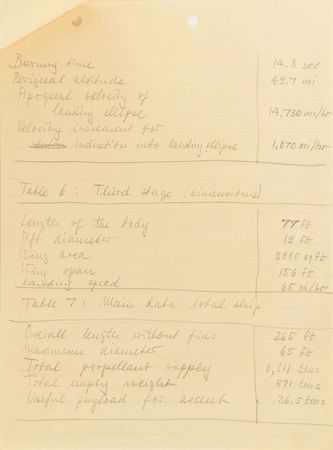 Burning time 14.8 sec
Perigeal altitude 49.7 mi
Apogeal velocity of
landing ellipse 14,730 mi/hr
Velocity increment for
induction into landing ellipse 1,070 mi/hr
Table 6: Third stage (dimensions)
Length of the body 77 ft
Aft diameter 19 ft
Wing area sq ft
Wing span 156 ft
Landing speed 65 mi/hr
Table 7: Main data total ship
Overall length without fins 265 ft
Maximum diameter 65 ft
Total propellant supply 6,111 tons
Total empty weight 871 tons
Useful payload for ascent 36.5 tons